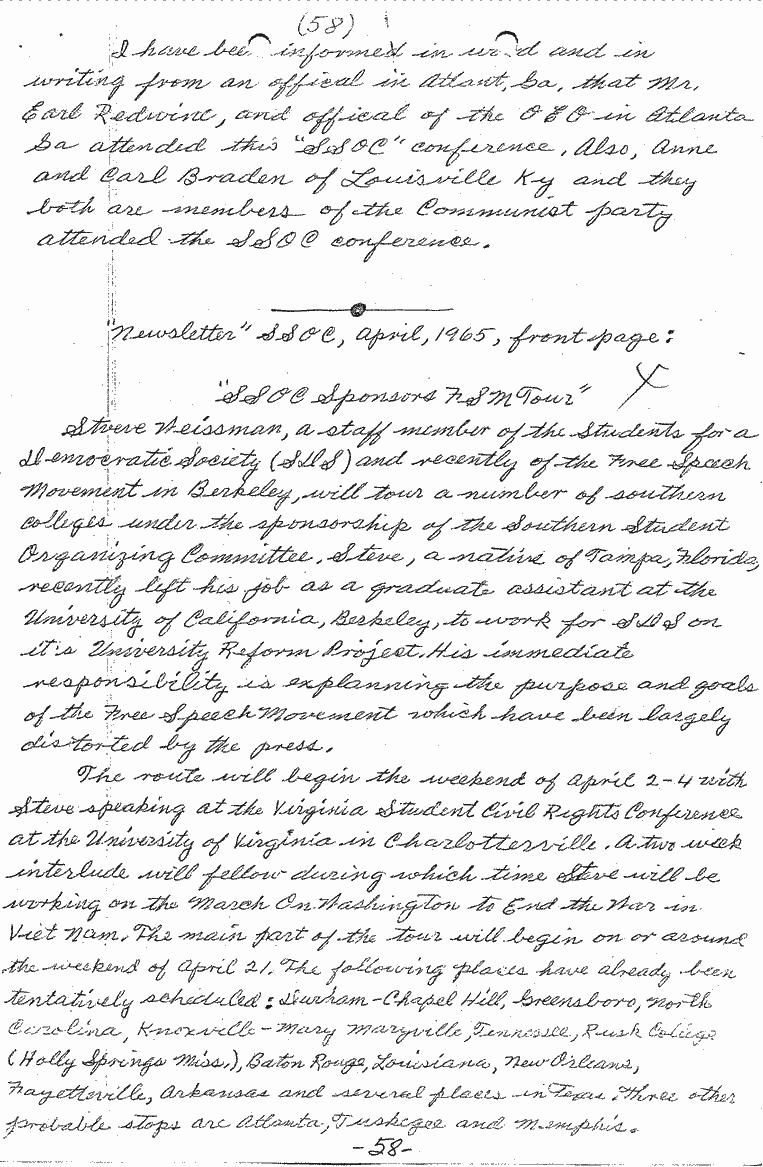 (58)
I have been informed in word and in
writing from an offical in Atlant, Ga. that Mr.
Earl Redwine, and offical of the OEO in Atlanta
Ga attended this "SSOC" conference. Also, Anne
and Carl Braden of Louisville Ky and they
both are members of the Communist party
attended the SSOC conference.
"Newsletter" SSOC, April, 1965, front page:
"SSOC Sponsors FSM Tour" X
Steve Weissman, a staff member of the Students for a
Democratic Society (SDS) and recently of the Free Speech
Movement in Berkeley, will tour a number of southern
colleges under the sponsorship of the Southern Student
Organizing Committee. Steve, a native of Tampa, Florida,
recently left his job as a graduate assistant at the
University of California, Berkeley, to work for SDS on
it's University Reform Project. His immediate
responsibility is explanning the purpose and goals
of the Free Speech Movement which have been largely
distorted by the press.
The route will begin the weekend of April 2-4 with
Steve speaking at the Virginia Student Civil Rights Conference
at the University of Virginia in Charlotterville. A two week
interlude will fellow during which time Steve will be
working on the March On Washington to End the War in
Viet Nam. The main part of the tour will begin on or around
the weekend of April 21. The following places have already been
tentatively scheduled: Durham-Chapel Hill, Greensboro, North
Carolina, Knoxville-Mary Maryville, Tennessee, Rusk College
(Holly Springs Miss.), Baton Rouge, Louisiana, New Orleans,
Fayetteville, Arkansas and several places in Texas. Three other
probable stops are Atlanta, Tuskegee and Memphis.
-58-